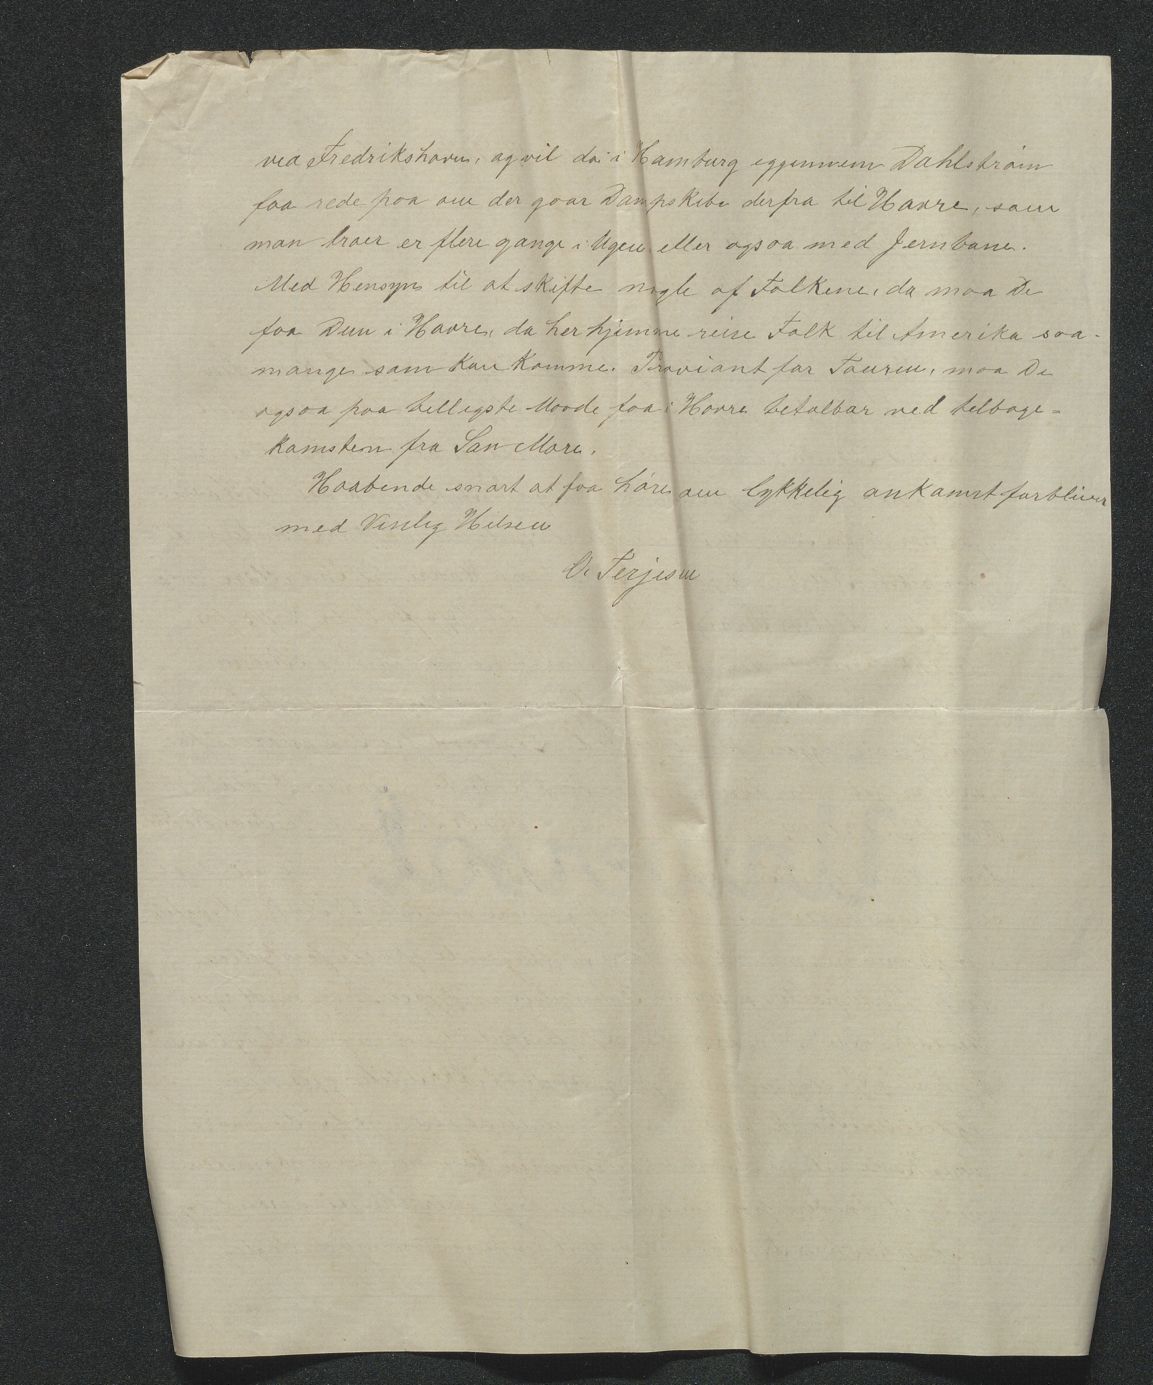 ved Fredrikshavn, og vil da i Hamburg igjennem Dahlstrøm
faa rede paa om der gaar Dampskibe derfra til Havre, som
man troer er flere gange i Ugen eller ogsaa med Jernbane.
Med Hensyn til at skifte nogle af Folkene, da maa De
faa Dem i Havre, da her hjemme reise Folk til Amerika saa-
mange som kan komme. Proviant for Touren, maa De
ogsaa paa billigste Maade faa i Havre betalbar ved tilbage-
komsten fra San Marc.
Haabende snart at faa høre om lykkelig ankomst forbliver
med Venlig Hilsen
O. Terjesen